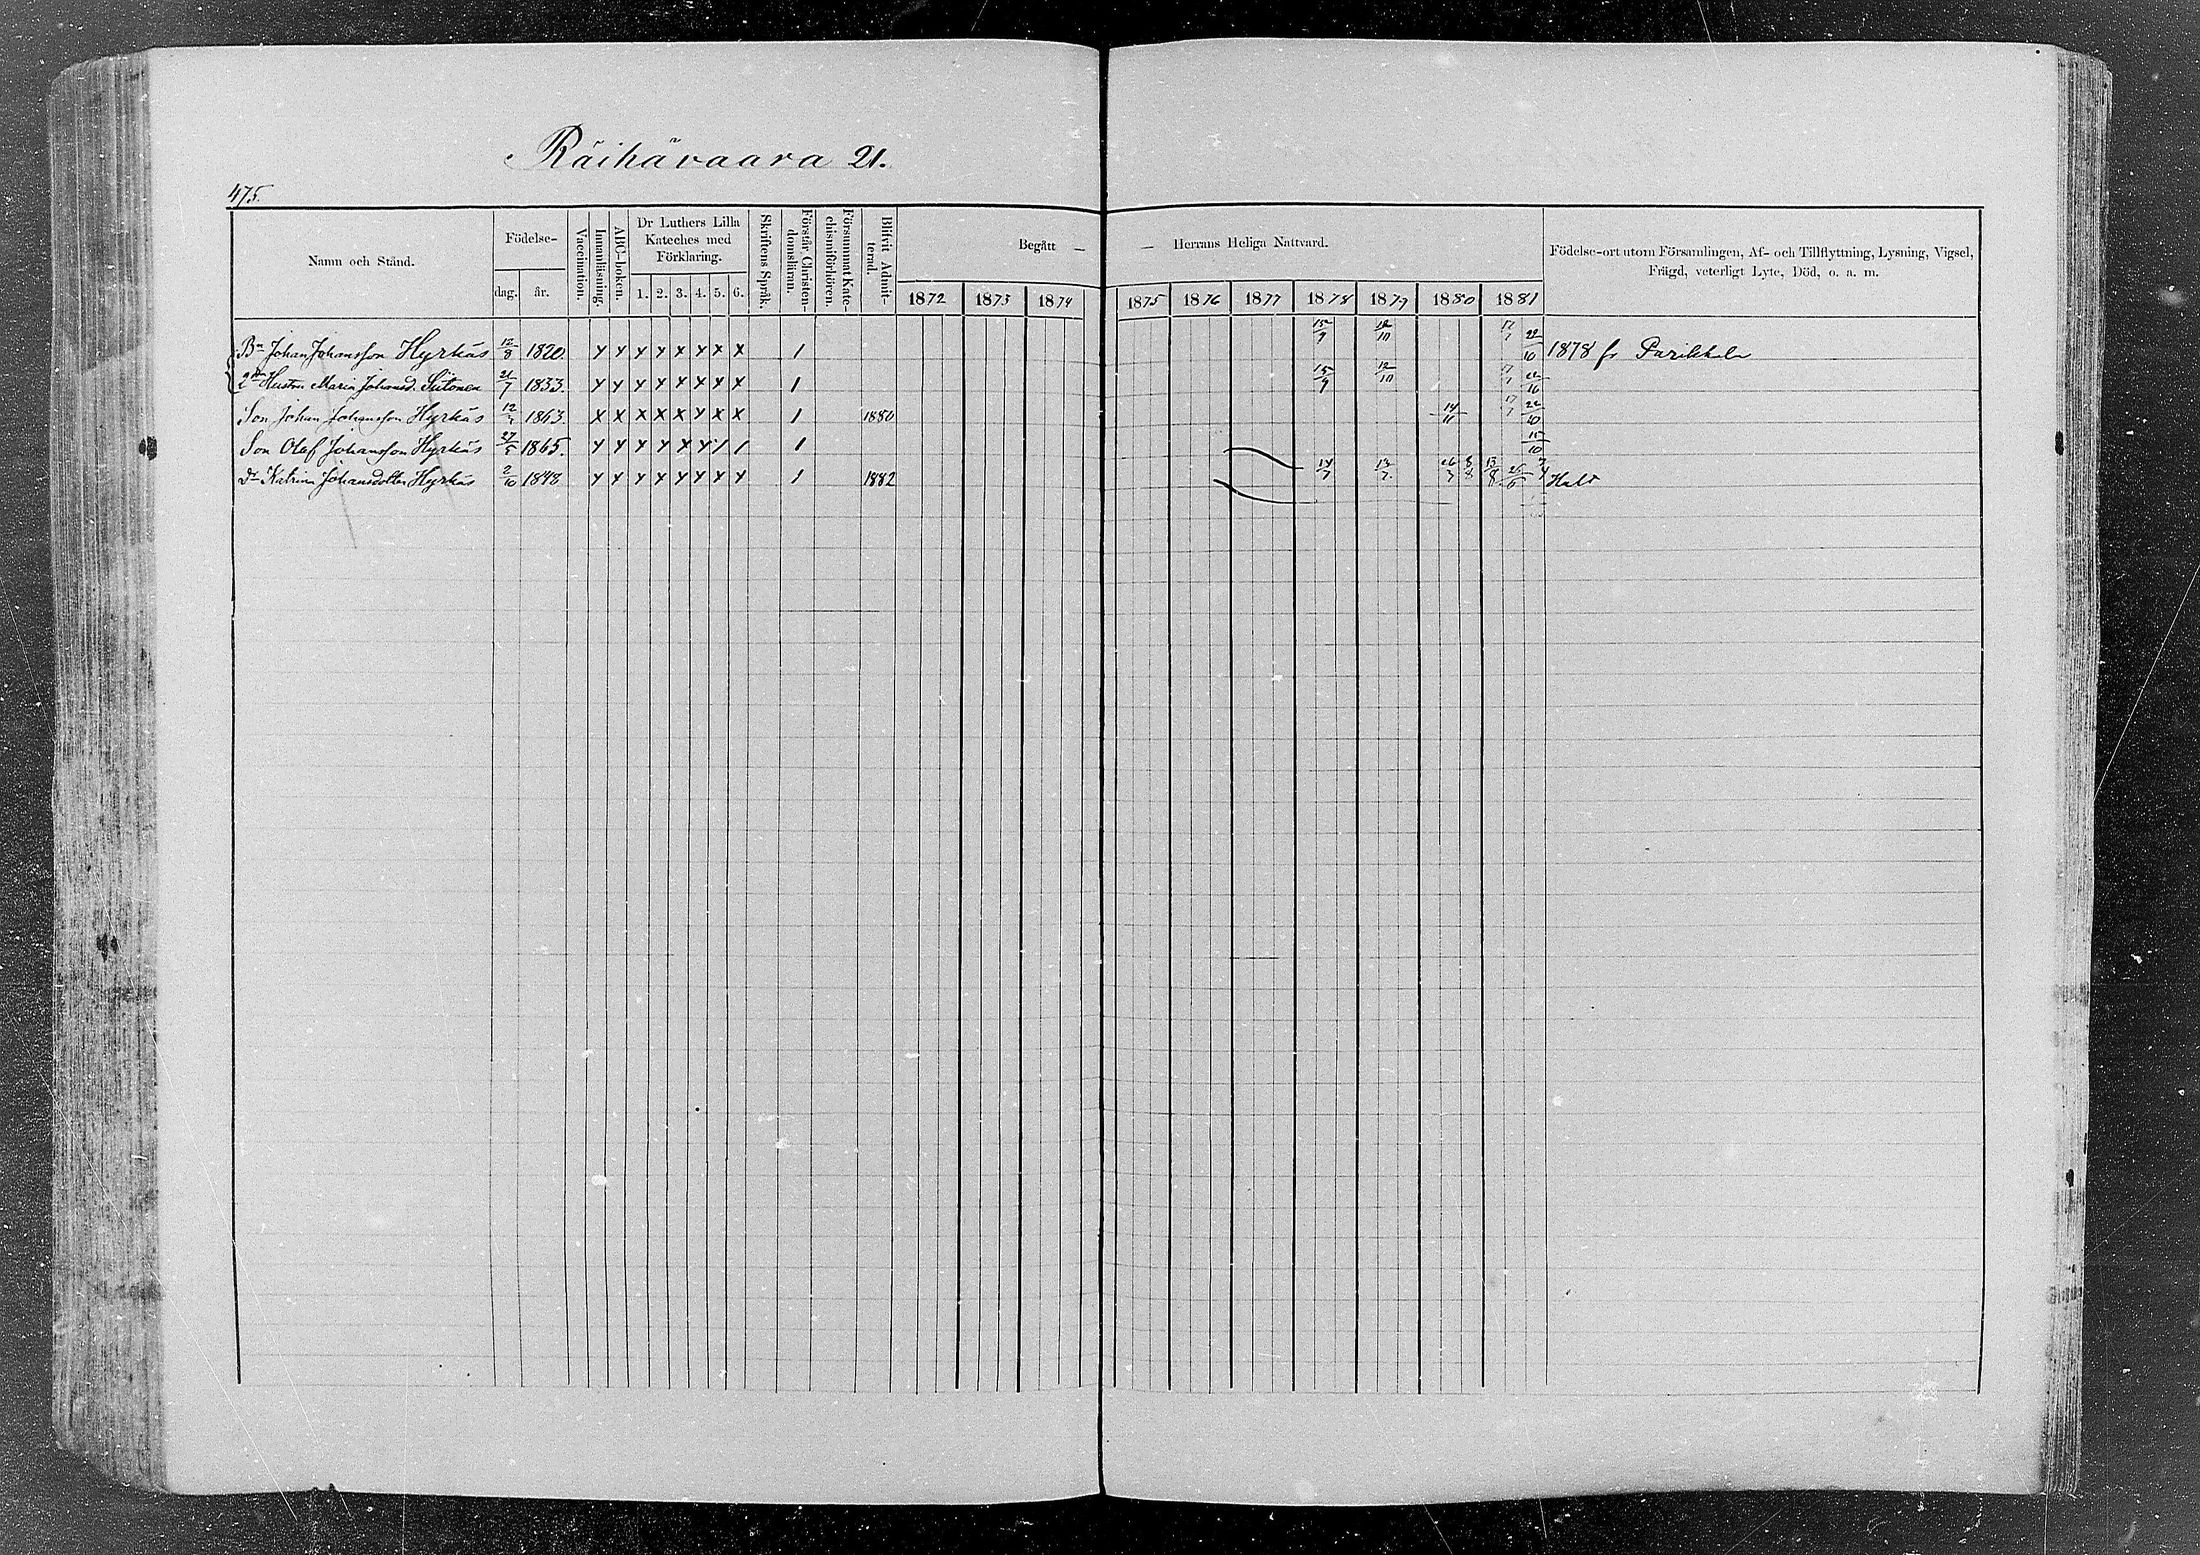 Räihävaara 21.
475.
Namn och Stånd.
Födelse-
dag. år.
Vaccination.
Innanläsning.
ABC-boken.
Dr Luthers Lilla Kateches med Förklaring.
1. 2. 3. 4. 5. 6.
Skriftens Språk.
Förstår Christendomsläran.
Försummat Katechismiförhören.
Blifvit Admitterad.
Begått — — Herrans Heliga Nattvard.
1872 1873 1874 1875 1876 1877 1878 1879 1880 1881
Födelse-ort utom Församlingen, Af- och Tillflyttning, Lysning, Vigsel,
Frägd, veterligt Lyte, Död, o. a. m.
Bn Johan Johansson Hyrkäs 12/8 1820. 1 15/9 12/10 17/7 22/10 1878 fr Parikkala
Hustru Maria Johansd. Siitonen 21/7 1833. 1 15/9 12/10 17/7 22/10
Son Johan Johansson Hyrkäs 1863. 1 1880 14/11 17/7 22/10
Son Olof Johansson Hyrkäs 27/5 1865. 1 15/10
Dr Katrina Johansdotter Hyrkäs 2/10 1848 1 1882 14/7 Halt